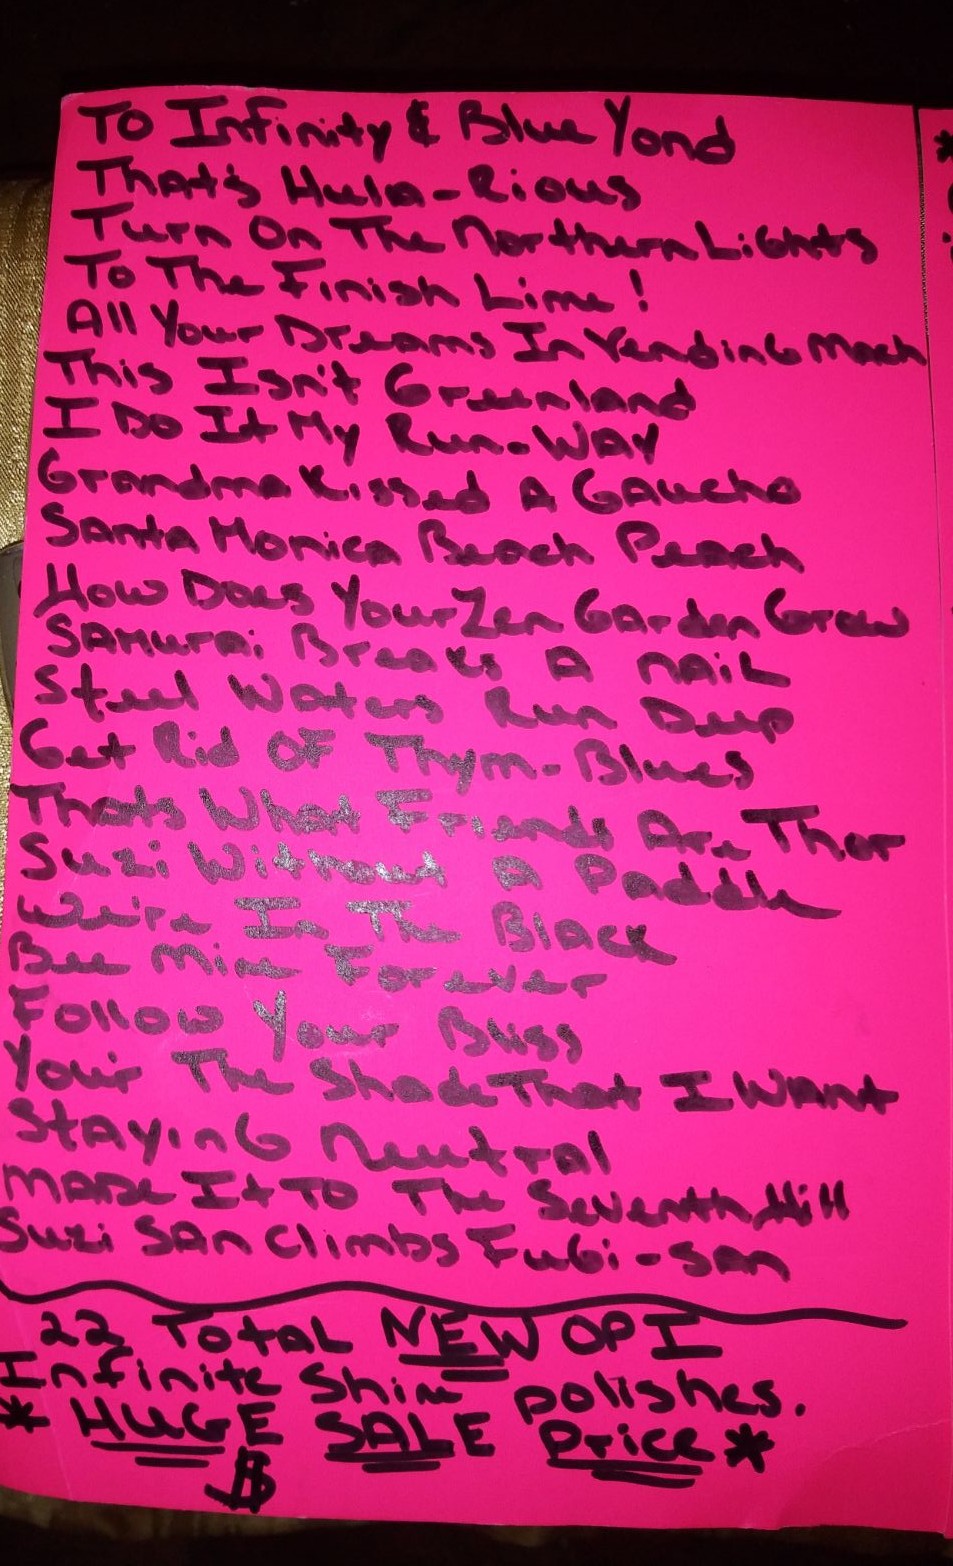 To Infinity & Blue Yond
That's Hula-Rious
Turn On The Northern Lights
To The Finish Lime!
All Your Dreams In Vending Mach
This Isn't Greenland
I Do It My Run-Way
Grandma Kissed A Gaucho
Santa Monica Beach Peach
How Does Your Zen Garden Grow
Samurai Breaks A Nail
Steel Waters Run Deep
Get Rid Of Thym-Blues
Thats What Friends Are Thor
Suzi Without A Paddle
We're In The Black
Bee Mine Forever
Follow Your Bliss
Your The Shade That I Want
Staying Neutral
Made It To The Seventh Hill
Suzi San Climbs Fugi-San
22 Total NEW OPI
Infinite Shine polishes.
* HUGE SALE Price *
$